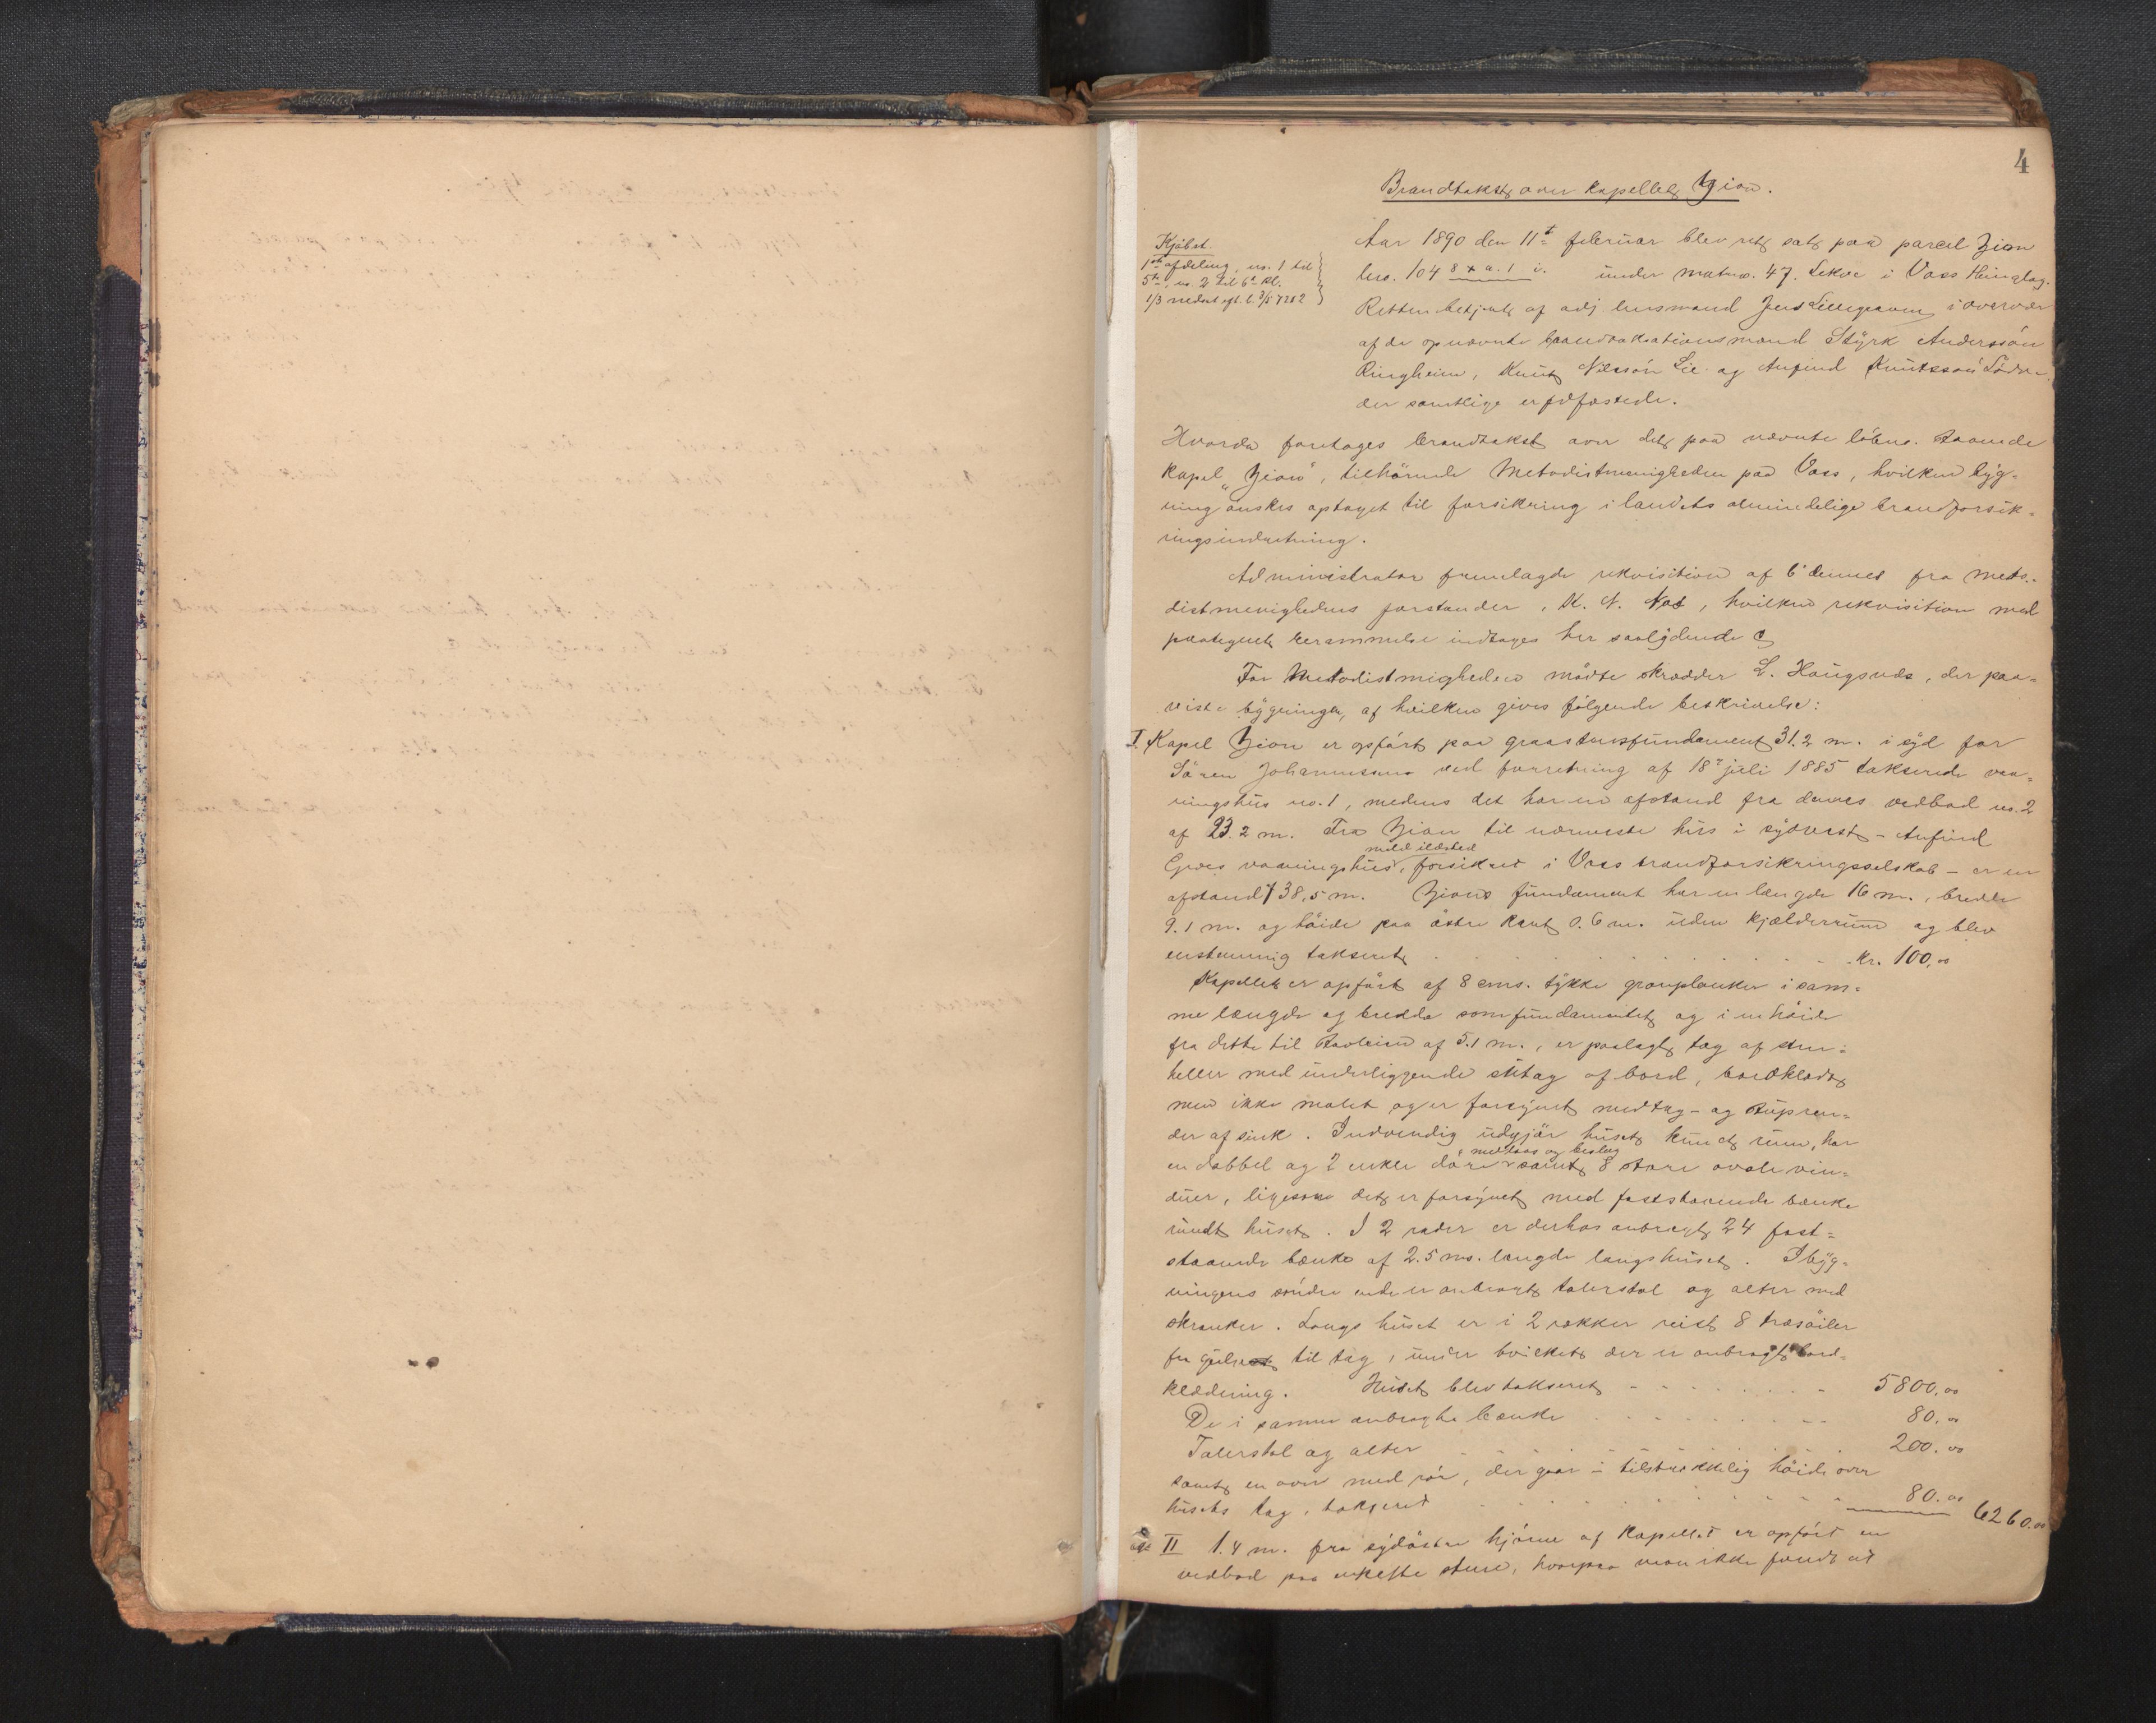 4
Brandtakst over kapellet Zion.
Kjøbet.
1ste afdeling, no. 1 til
5te, no. 2 til 6te kl.
1/3 nedsat
Aar 1890 den 11te februar blev ret sat paa parcel Zion
løbno. 104 8 x a. 1 i. under matrno. 47. Lekve i Voss thinglag.
Retten betjent af adj. lensmand Jens Lillegraven i overvær
af de opnævnte brandtaksationsmænd Styrk Anderssøn
Ringheim, Knut Nilssøn Lie og Anfind Knutssøn
der samtlige er edfæstede.
Hvorda foretages brandtakst over det paa nævnte løbno. staaende
kapel „Zion“, tilhørende Metodistmenigheden paa Voss, hvilken byg-
ning ønskes optaget til forsikring i landets almindelige brandforsik-
ringsindretning.
Administrator fremlagde rekvisition af 6te dennes fra meto-
distmenighedens forstander, K. N. , hvilken rekvisition med
paategnet berammelse indtages her saalydende
For Metodistmigheden mødte skrædder L. , der paa-
viste bygningen, af hvilken gives følgende beskrivelse:
I. Kapel Zion er opført paa graastensfundament 31.2 m. i syd for
Søren Johannesens ved forretning af 18de juli 1885 takserede vaa-
ningshus no. 1, medens det har en afstand fra dennes vedbod no. 2
af 23.2 m. Fra Zion til nærmeste hus i sydvest – Anfind
med ildsted
vaaningshus, forsikret i Voss brandforsikringsselskab – er en
afstand 38,5 m. Zions fundament har en længde 16 m., bredde
9.1 m. og høide paa østre kant 0.6 m. uden kjælderrum og blev
enstemmig takseret . . . kr. 100,00
Kapellet er opført af 8 cms. tykke granplanker i sam-
me længde og bredde som fundamentet og i en høide
fra dette til stavleien af 5.1 m., er paalagt tag af sten-
heller med underliggende sutag af bord, bordklædt
men ikke malet og er forsynet med tag- og stupren-
der af sink. Indvendig udgjør huset kun et rum, har
med laas og beslag
en dobbel og 2 enkle døre samt 8 store ovale vin-
duer, ligesom det er forsynet med faststaaende bænke
rundt huset. I 2 rader er derhos anbragt 24 fast-
staaende bænke af 2.5 ms. længde langs huset. I byg-
ningens søndre ende er anbragt talerstol og alter med
skranker. Langs huset er i 2 rækker reist 8 træsøiler
fra gulvet til tag, under hvilket der er anbragt bord-
klædning. Huset blev takseret . . . 5800.00
De i samme anbragte bænke . . . 80.00
Talerstol og alter . . . 200.00
samt en ovn med rør, der gaar i tilstrækkelig høide over
husets tag, takseret . . . 80.00 6260.00
II 1.4 m. fra sydøstre hjørne af kapellet er opført en
vedbod paa enkelte stene, hvorpaa man ikke fandt at